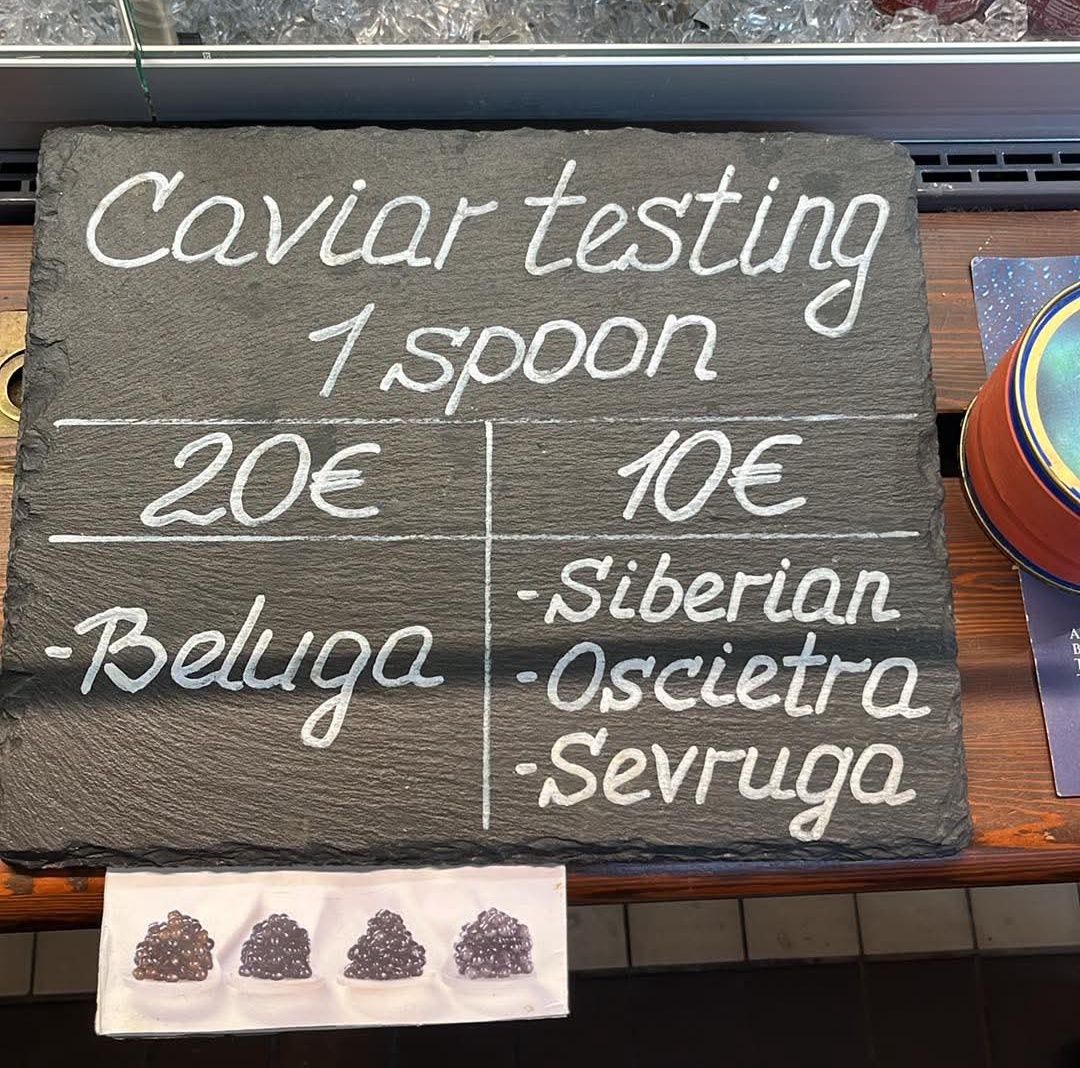 Caviar testing
1 spoon
20€ 10€
-Beluga
-Siberian
-Oscietra
-Sevruga